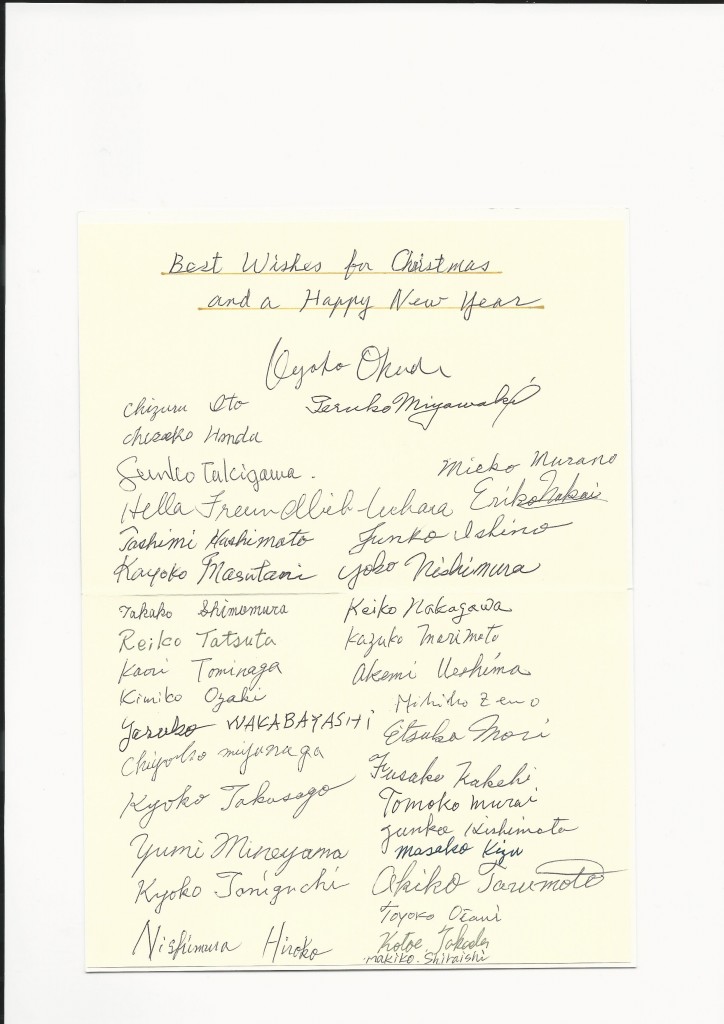 Best Wishes for Christmas
and a Happy New Year
Kyoko Okuda
Chizuru Ito Teruko Miyawaki
Chizuko Honda
Sumko Takigawa. Mieko Murano
Hella Freundlich-Uehara Eriko Nakai
Toshimi Hashimoto Junko Ishino
Kayoko Masutani Yoko Nishimura
Takako Shimomura Keiko Nakagawa
Reiko Tatsuta Kazuko Morimoto
Kaori Tominaga Akemi Ueshima
Kimiko Ozaki Mihiko Zeno
Yasuko WAKABAYASHI Etsuko Mori
Chiyoko miyanaga Fusako Kakehi
Kyoko Takasago Tomoko Murai
Junko Kishimoto
Yumi Mineyama Masako Kizu
Kyoko Taniguchi Akiko Tarumoto
Toyoko Otani
Nishimura Hiroko Kotoe Takeda
Makiko. Shiraishi